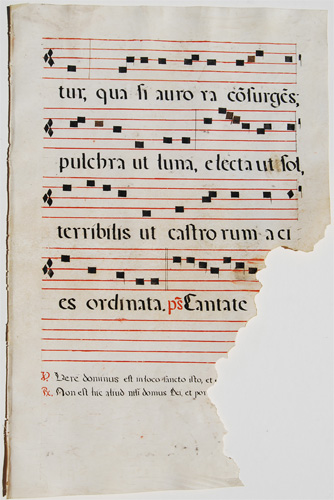 tur, qua si auro ra cõsurgẽs;
pulchra ut luna, electa ut sol,
terribilis ut castro rum a ci
es ordinata. ps Cantate
℣. Vere dominus est in loco sancto isto, et
℟. Non est hic aliud nisi domus Dei, et por